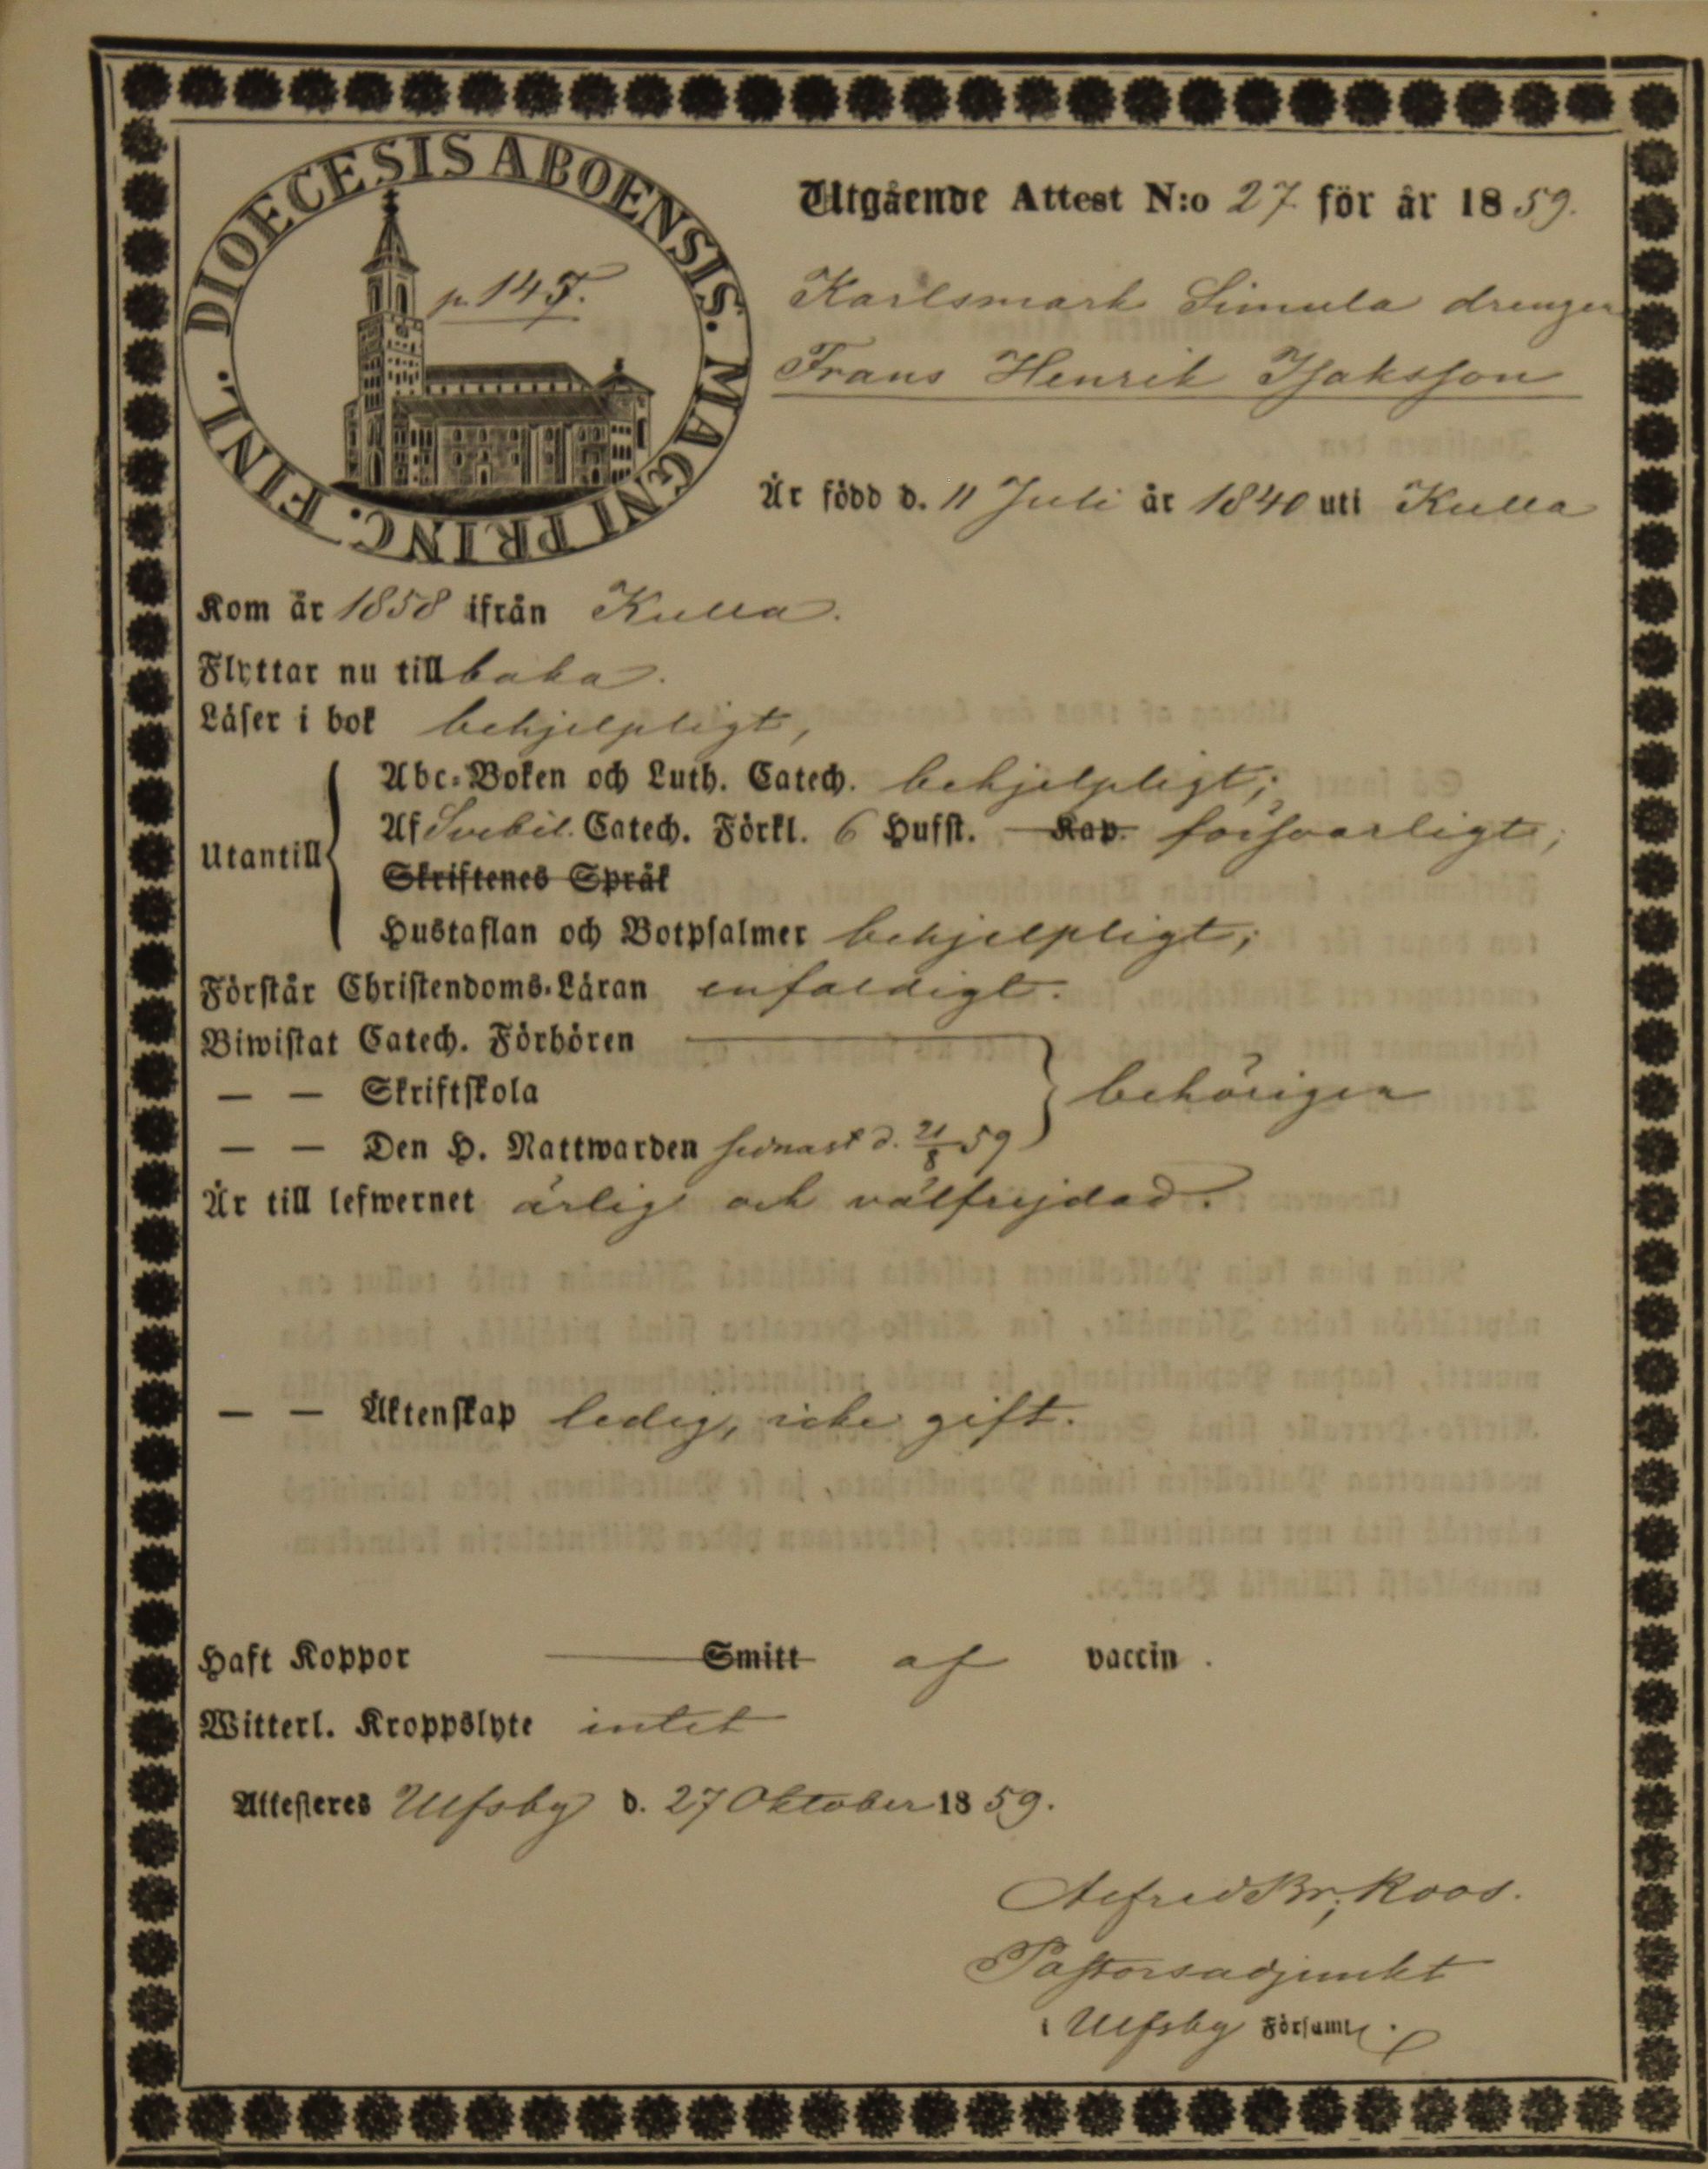 DIOECESIS ABOENSIS. MAGNI PRINC. FINL.
p. 147.
Utgående Attest N:o 27 för år 1859.
Karlsmark Simula drengen
Frans Henrik Isaksson
Är född d. 11 Juli år 1840 uti Kulla
Kom år 1858 ifrån Kulla.
Flyttar nu tillbaka.
Läser i bok behjelpligt,
Utantill
Abc-Boken och Luth. Catech. behjelpligt;
Af Svebil. Catech. Förkl. 6 Hufst. Kap. försvarligt;
Skriftenes Språk
Hustaflan och Botpsalmer behjelpligt;
Förstår Christendoms-Läran enfaldigt.
Biwistat Catech. Förhören
— — Skriftskola
behörigen
— — Den H. Nattwarden sednast d. 21/8 59
Är till lefwernet ärlig och välfrejdad.
— — Äktenskap ledig, icke gift.
Haft Koppor Smitt af vaccin.
Witterl. Kroppslyte intet
Attesteres Ulfsby d. 27 Oktober 1859.
Alfred Br; Roos.
Pastorsadjunkt
i Ulfsby Församl.